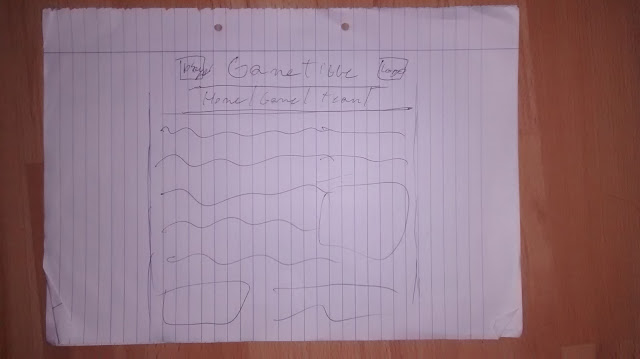 Game Title Logo
Home | Game | team |